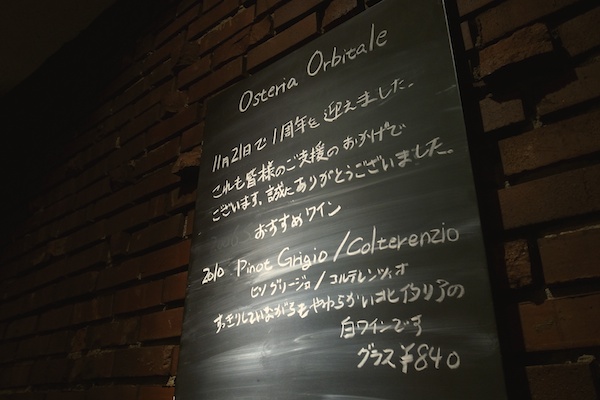 Osteria Orbitale
11月21日で1周年を迎えました。
これも皆様のご支援のおかげで
ございます。誠にありがとうございました。
おすすめワイン
2010 Pinot Grigio/Colterenzio
ピノグリージョ/コルテレンツィオ
すっきりしていながらもやわらかい北イタリアの
白ワインです
グラス ¥840